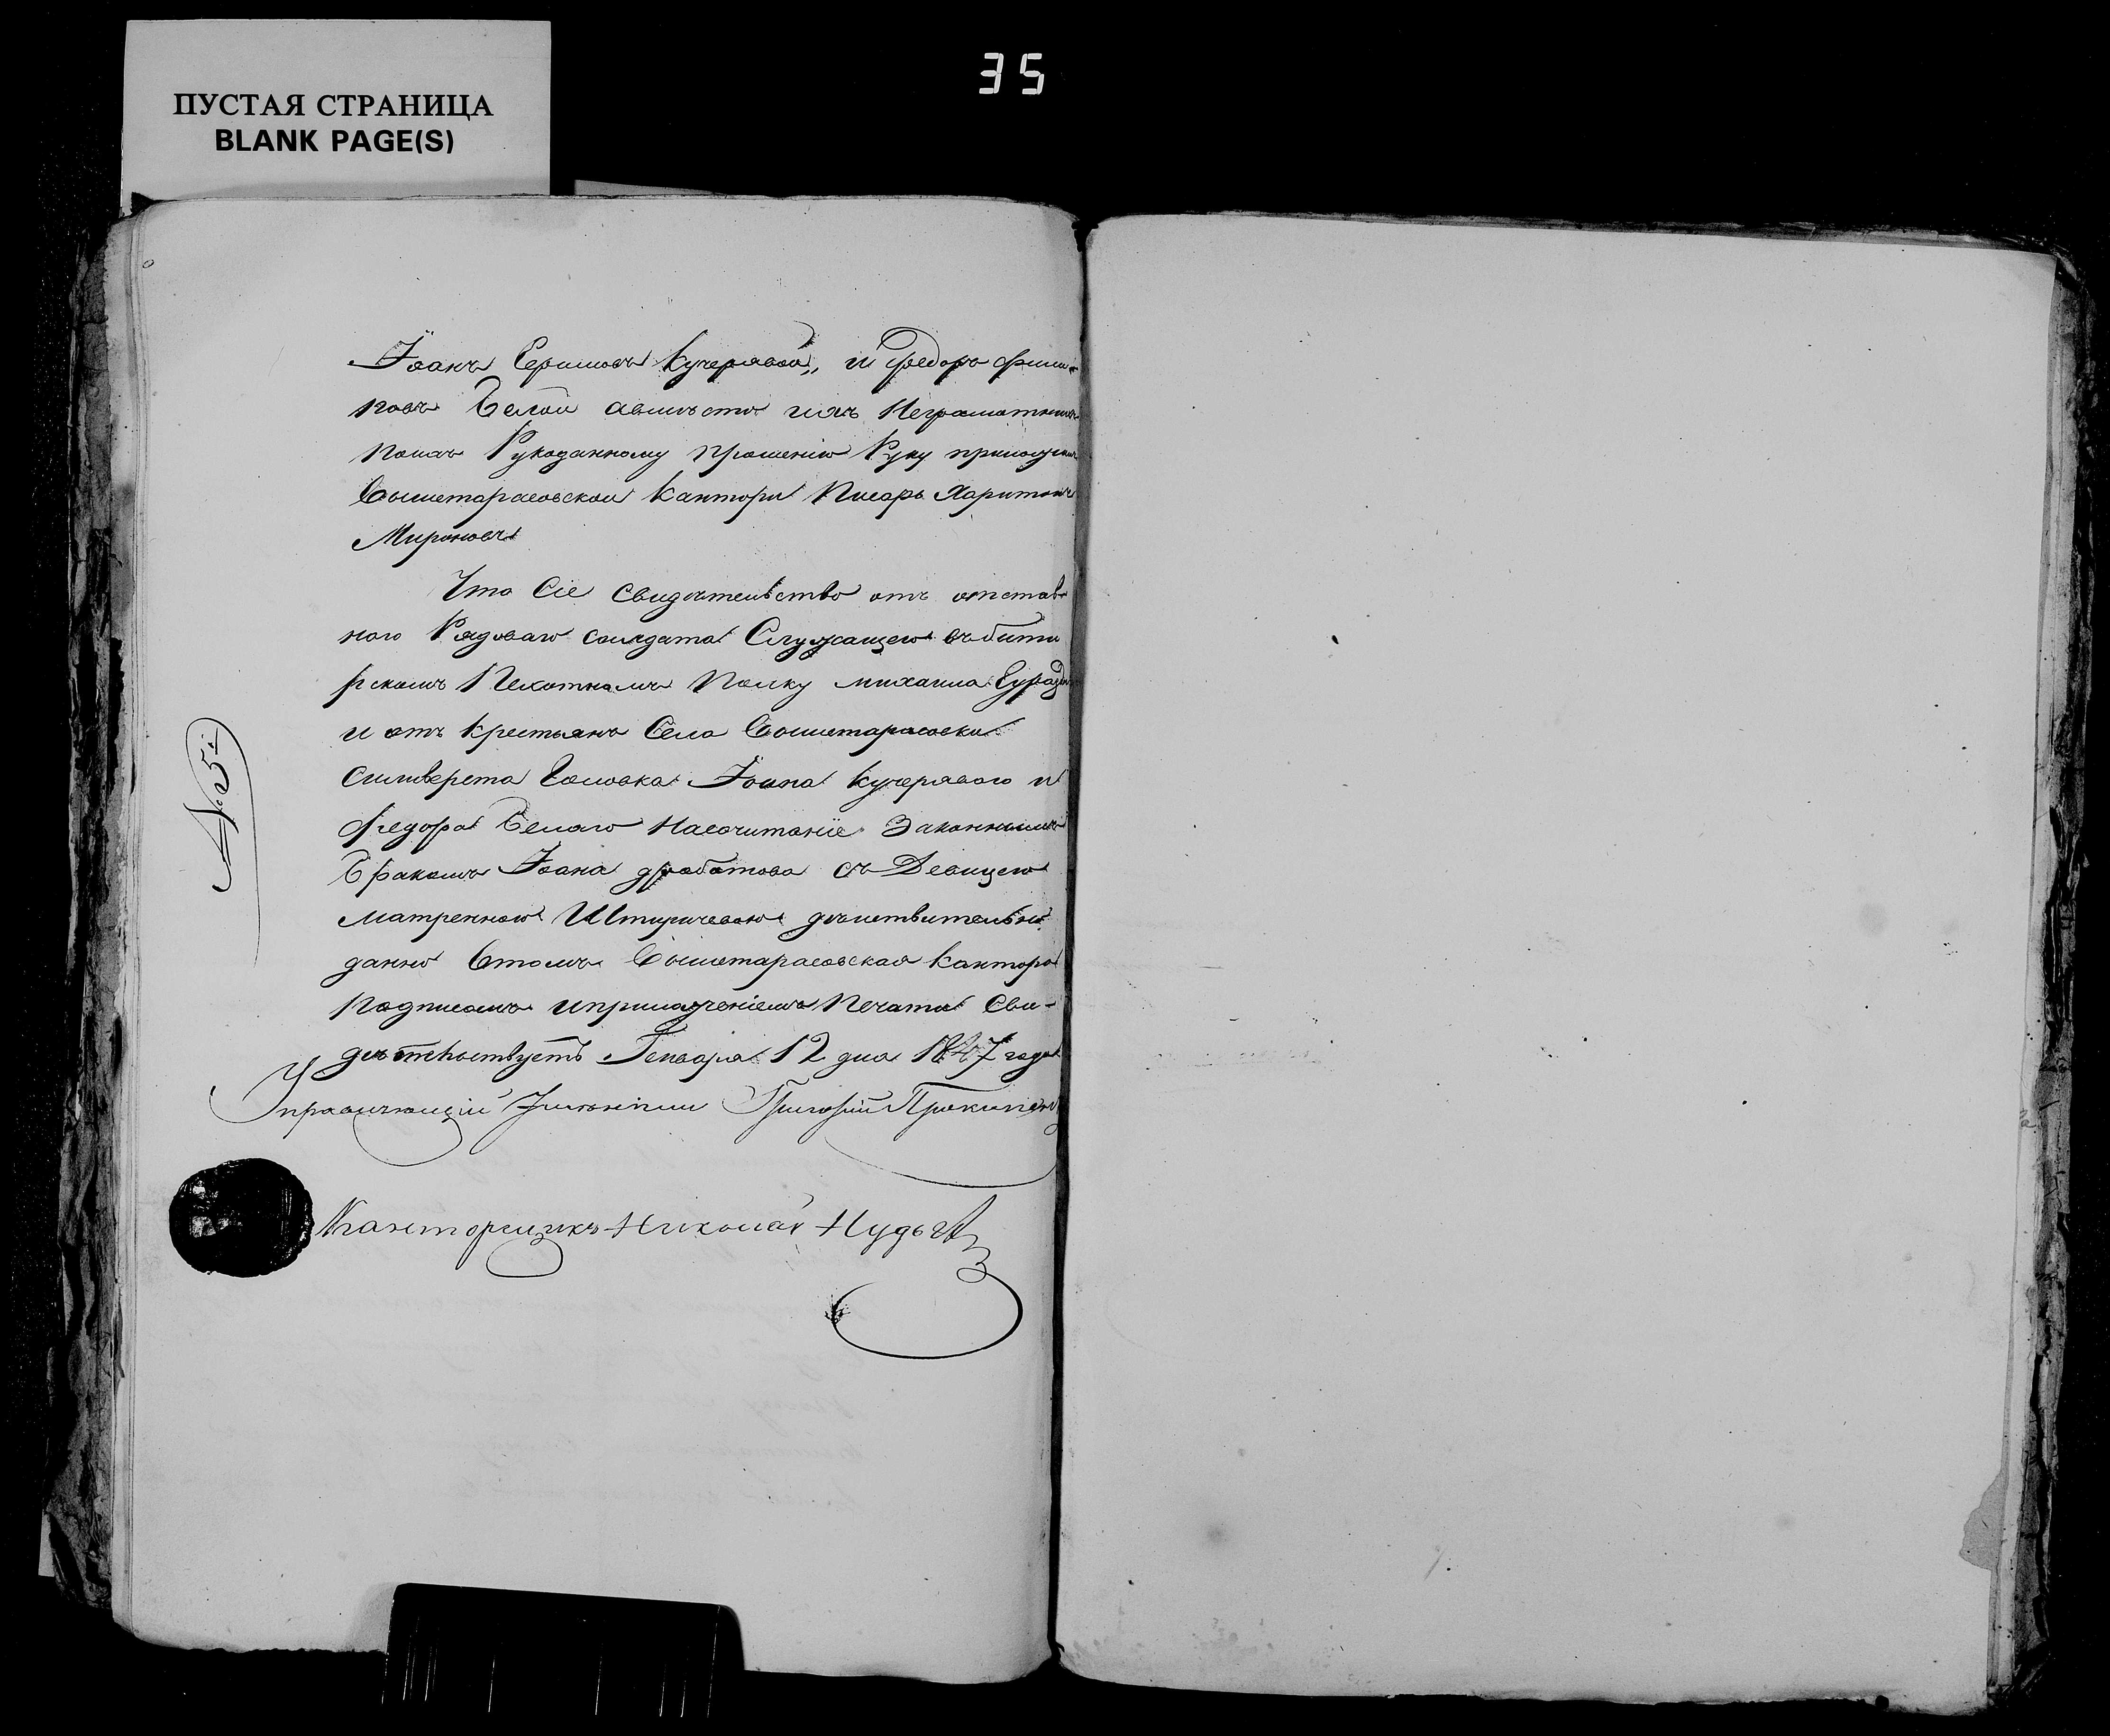 35
ПУСТАЯ СТРАНИЦА
BLANK PAGE(S)
Іоанъ Ефимовъ Кучерявой,, и Федоръ Фили-
повъ Белой авместо ихъ Неграмотних
Прошенію Руку приложил
Вышетарасовской Канторы Писарь Харитонъ
Мироновъ
Что Сіе Свидѣтельство отъ отстав
ного Рядоваго солдата Служащего въ
рскомъ Пехотномъ Полку михаила
и отъ Крестьянъ Села Вышетарасовки
Силиверста Головка Іоана Кучерявого и
Федора Белаго Насочитаніе Законнымъ
Бракомъ Іоана дробатова съ Девицею
Матренною действительно
данно Втомъ Вышетарасовская Кантора
Подписомъ иприложеніемъ Печати Сви-
детельствуетъ Генваря 12 дня 1847 года
№ 5й
Управляющій Имѣніем Григорій
Канторщикъ Николай Нудьга